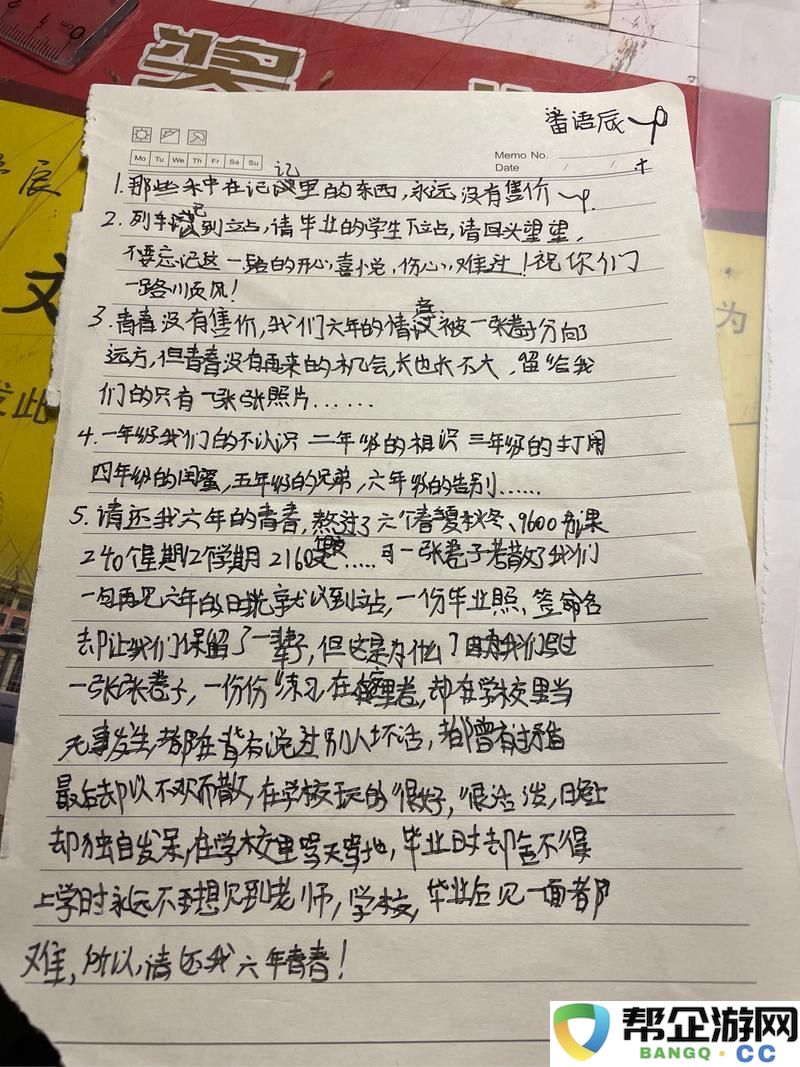 奖
番语辰
Mo Tu We Th Fr Sa Su
Memo No.
Date / /
记
1.那些集中在记里的东西,永远没有售价
2.列车到立占,请毕业的学生下立占,请回头望望,
不要忘记这一路的开心,喜悦,伤心,难过!祝你们
一路川页风!
3.青春没有售价,我们六年的情被一张卷子分向
远方,但青春没有再来的机会,长也长不大,留给我
们的只有一张张照片......
4.一年级我们的不认识 二年级的相识 三年级的打闹
四年级的闺蜜,五年级的兄弟,六年级的告别......
5.请还我六年的青春,熬过了六个春夏秋冬、9600节课
240个星期12个学期 2160.....一张卷子考散了我们
一句再见六年的时光就到站,一份毕业照、签命名
却让我们保留了一辈子,但这是为什么?因为我们写过
一张张卷子,一份份练习在里卷,却在学校里当
无事发生,都在背有说过别人坏话,都曾有过矛盾
最后却以不欢而散,在学校玩的很好,很活泼,晚上
却独自发呆,在学校里骂天骂地,毕业时却舍不得
上学时永远不想见到老师,学校,毕业后见一面都
难,所以,请还我六年青春!
辰
文
发此
为
帮企游网
BANGQ·CC